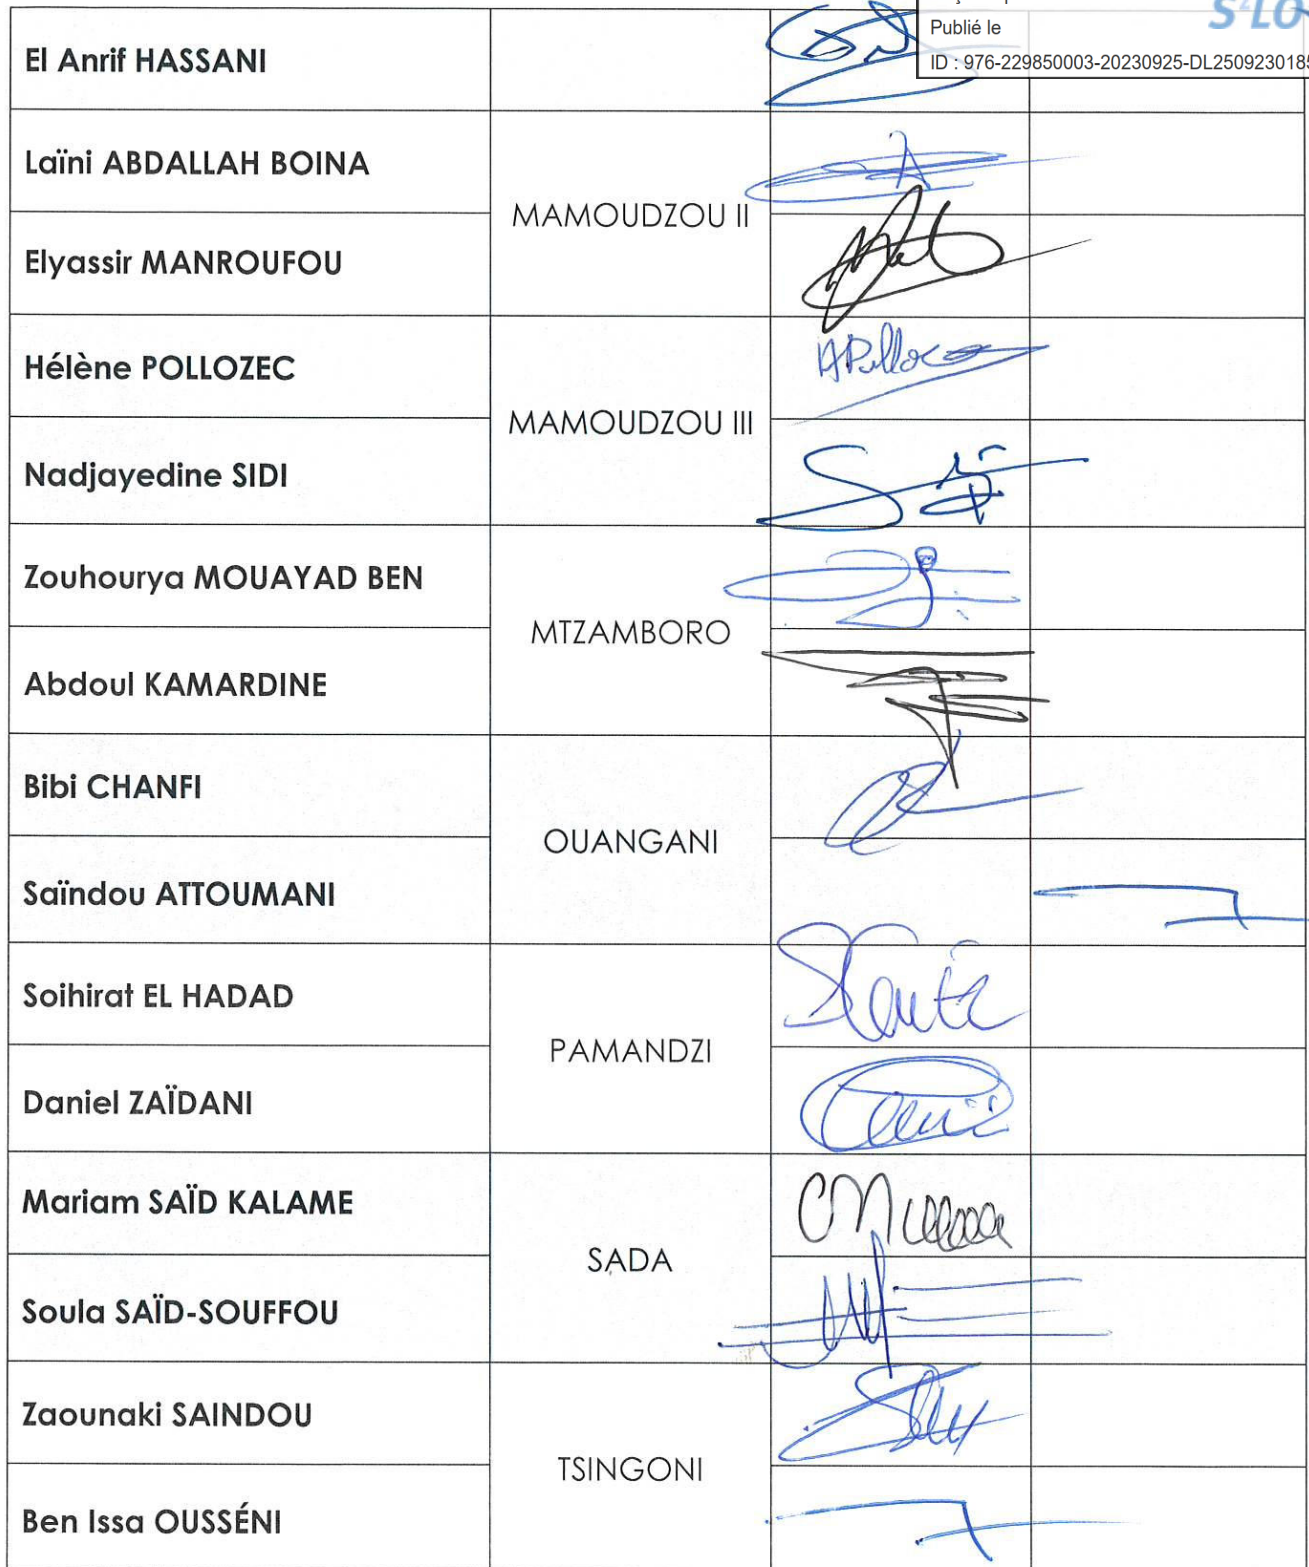 Publié le
S²LO
ID : 976-229850003-20230925-DL2509230185
El Anrif HASSANI
Laïni ABDALLAH BOINA
MAMOUDZOU II
Elyassir MANROUFOU
Hélène POLLOZEC
MAMOUDZOU III
Nadjayedine SIDI
Zouhourya MOUAYAD BEN
MTZAMBORO
Abdoul KAMARDINE
Bibi CHANFI
OUANGANI
Saïndou ATTOUMANI
Soihirat EL HADAD
PAMANDZI
Daniel ZAÏDANI
Mariam SAÏD KALAME
SADA
Soula SAÏD-SOUFFOU
Zaounaki SAINDOU
TSINGONI
Ben Issa OUSSÉNI